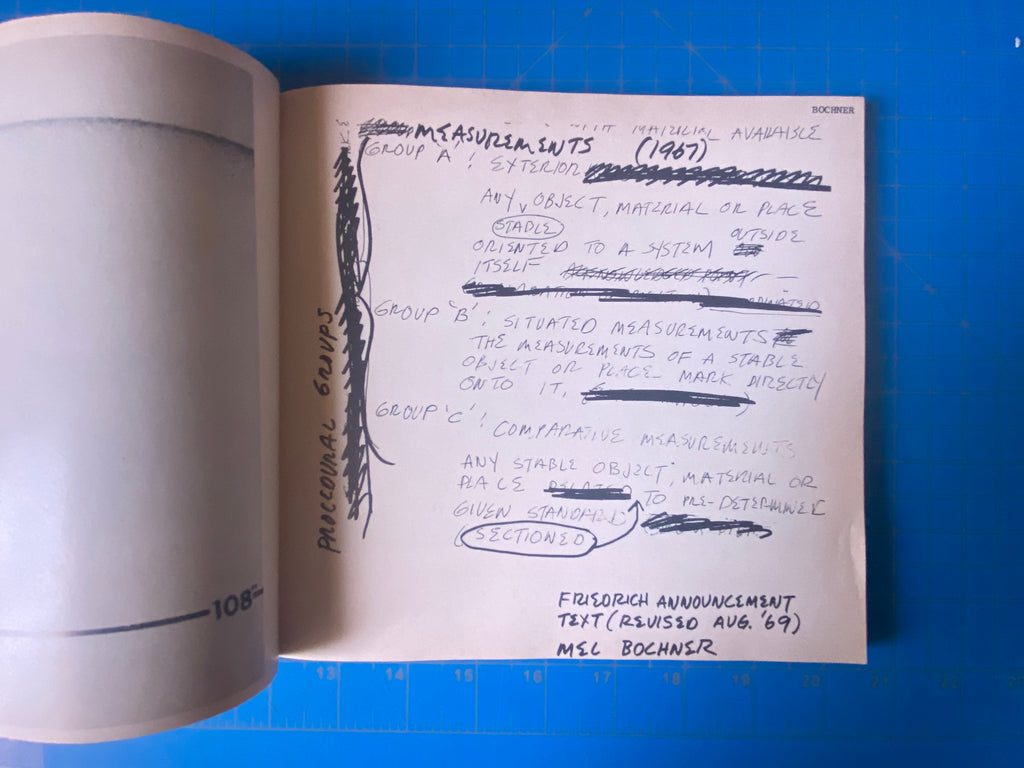 BOCHNER
WITH MATERIAL AVAILABLE
MEASUREMENTS (1967)
GROUP 'A': EXTERIOR
ANY OBJECT, MATERIAL OR PLACE
STABLE
ORIENTED TO A SYSTEM OUTSIDE
ITSELF
GROUP 'B': SITUATED MEASUREMENTS
THE MEASUREMENTS OF A STABLE
OBJECT OR PLACE MARK DIRECTLY
ONTO IT,
GROUP 'C': COMPARATIVE MEASUREMENTS
ANY STABLE OBJECT, MATERIAL OR
PLACE RELATED TO PRE-DETERMINED
GIVEN STANDARD
SECTIONED
PROCEDURAL GROUPS
FRIEDRICH ANNOUNCEMENT
TEXT (REVISED AUG. '69)
MEL BOCHNER
108"
13 14 15 16 17 18 19 20 21 22